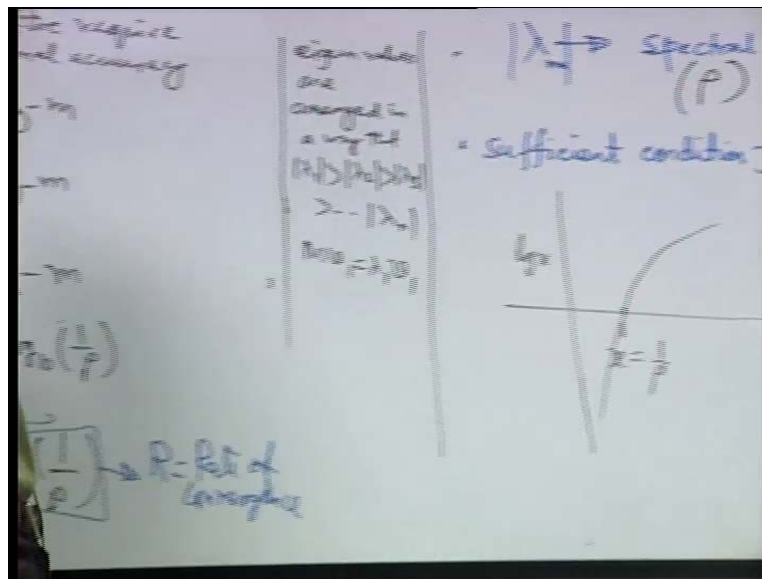 the require
accuracy
-m
-m
-m
(1/ρ)
(1/ρ) → R = Rate of
Convergence
eigen values
are
arranged in
a way that
|λ₁|>|λ₂|>|λ₃|
>--|λₙ|
|λ₁| → spectral
(ρ)
sufficient condition
log x
x = 1/ρ